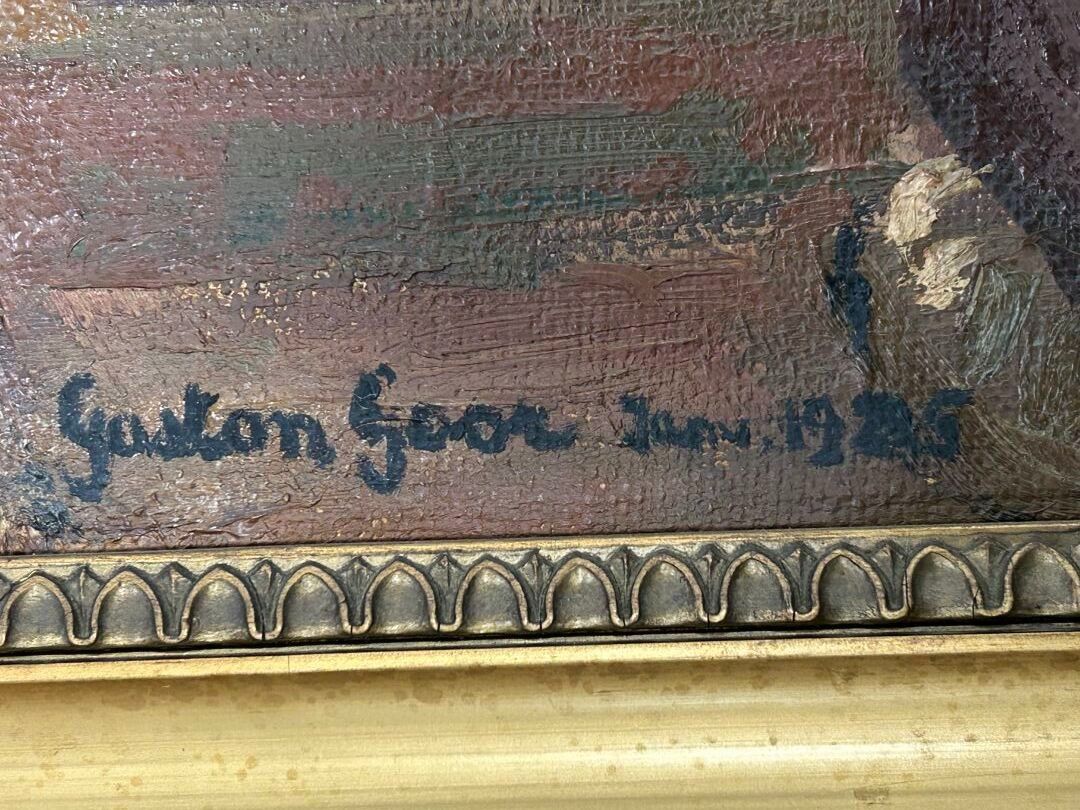 Gaston Goor Janv. 1925